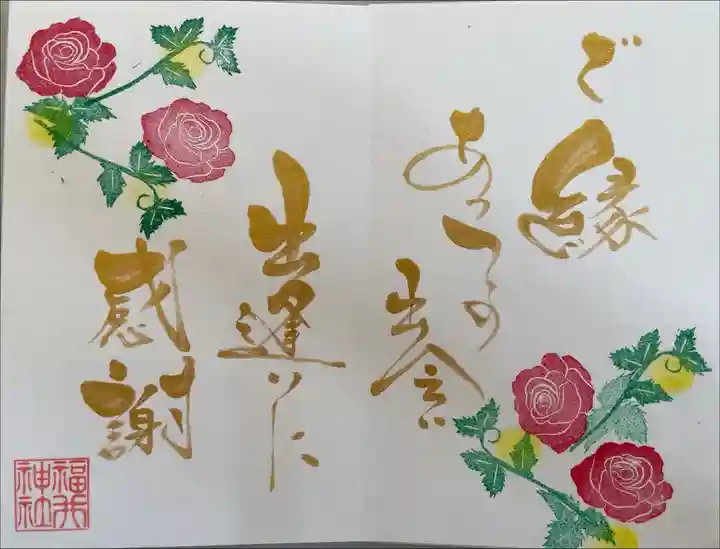 ご縁
あっての
出会い
出逢いに
感謝
福
神社